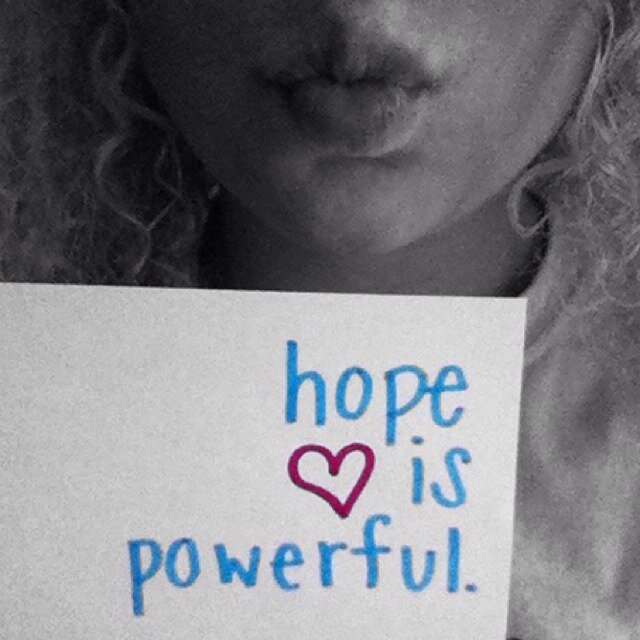 hope
is
powerful.